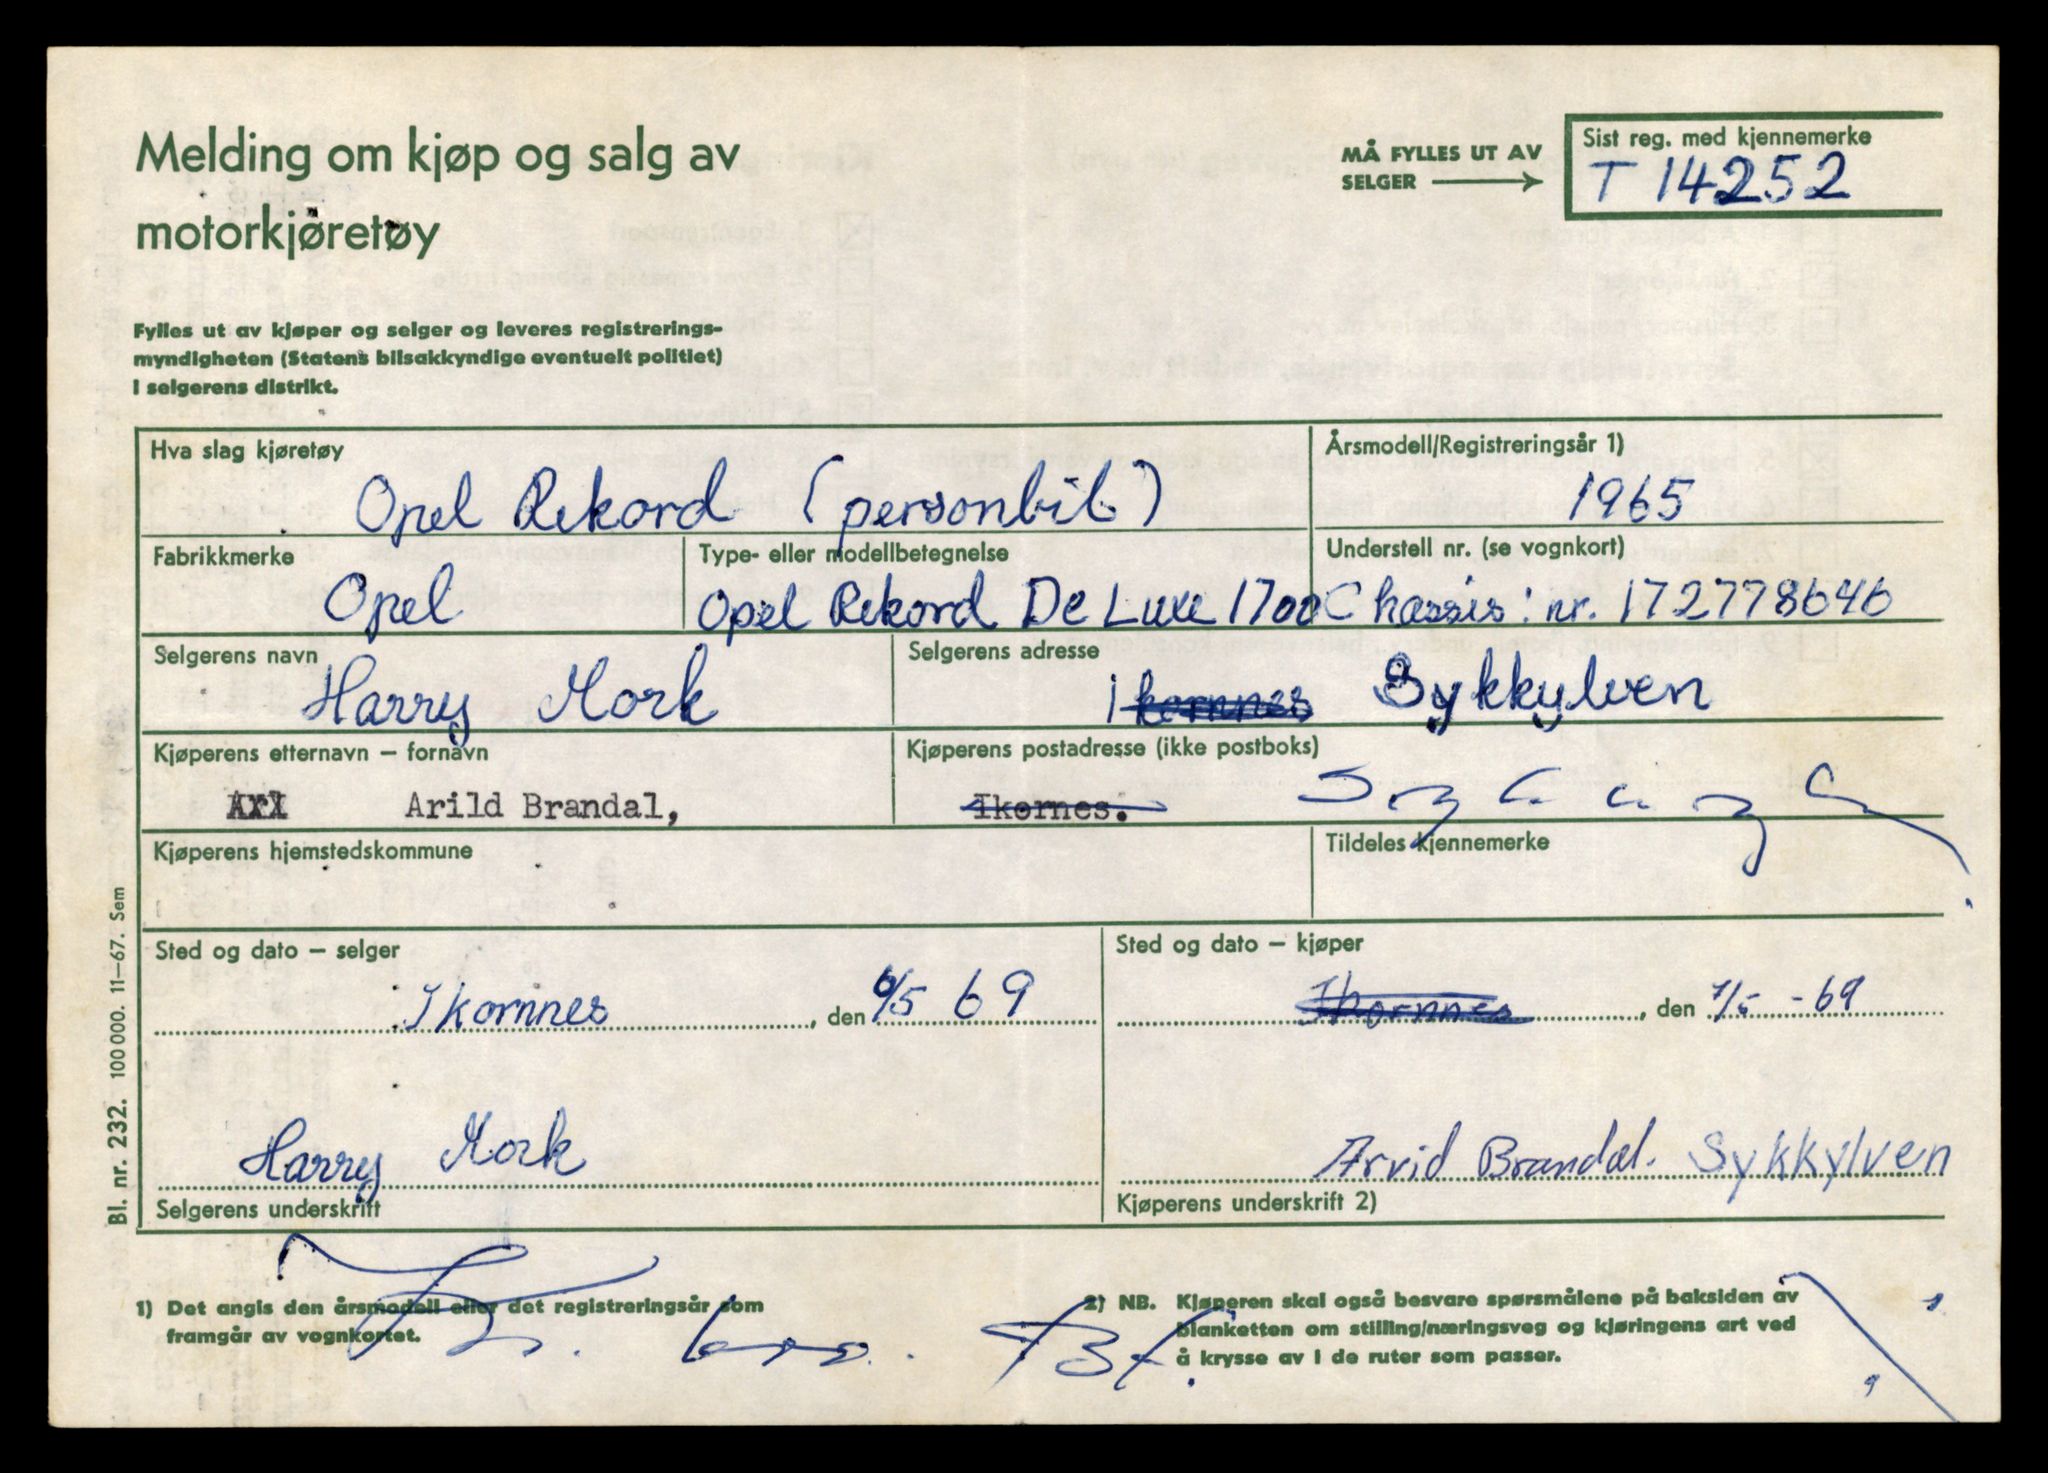 Melding om kjøp og salg av
motorkjøretøy
MÅ FYLLES UT AV
SELGER
Sist reg. med kjennemerke
T 14252
Fylles ut av kjøper og selger og leveres registrerings-
myndigheten (Statens bilsakkyndige eventuelt politiet)
i selgerens distrikt.
Hva slag kjøretøy
Opel Rekord (personbil)
Årsmodell/Registreringsår 1)
1965
Fabrikkmerke
Opel
Type- eller modellbetegnelse
Opel Rekord De Luxe 1700
Understell nr. (se vognkort)
Chassis: nr. 172778646
Selgerens navn
Harry Mork
Selgerens adresse
Ikornnes Sykkylven
Kjøperens etternavn – fornavn
Arild Brandal,
Kjøperens postadresse (ikke postboks)
Ikornes.
Kjøperens hjemstedskommune
Tildeles kjennemerke
Sted og dato – selger
Ikornnes, den 6/5 69
Sted og dato – kjøper
Ikornnes, den 7/5 -69
Harry Mork
Selgerens underskrift
Arvid Brandal. Sykkylven
Kjøperens underskrift 2)
1) Det angis den årsmodell eller det registreringsår som
framgår av vognkortet.
2) NB. Kjøperen skal også besvare spørsmålene på baksiden av
blanketten om stilling/næringsveg og kjøringens art ved
å krysse av i de ruter som passer.
Bl. nr. 232. 100 000. 11–67. Sem